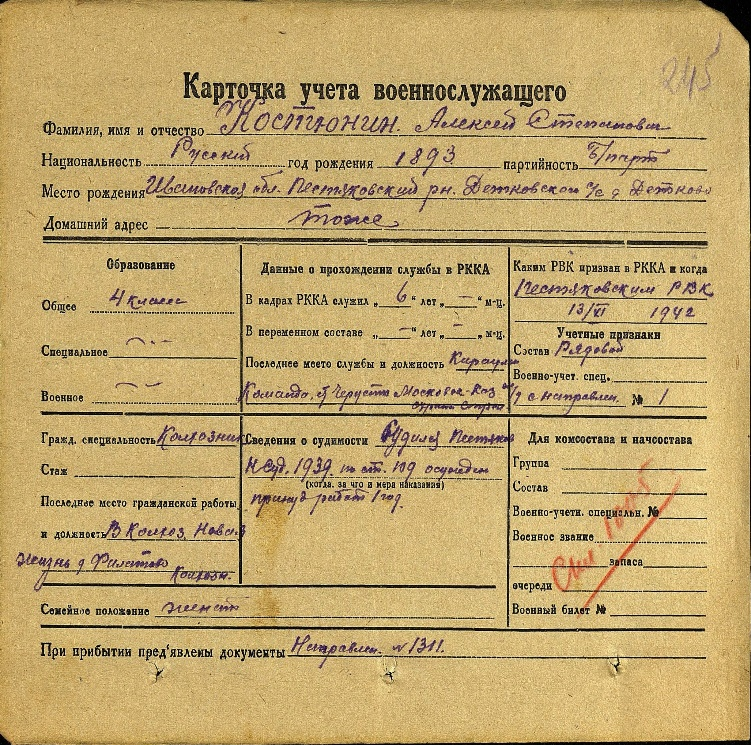 245
Карточка учета военнослужащего
Фамилия, имя и отчество Костюнин. Алексей Степанович
Национальность Русский год рождения 1893 партийность Б/парт
Место рождения Ивановская обл. Пестяковский рн. Детковского с/с д. Детково
Домашний адрес тоже
Образование
Общее 4 класса
Специальное —
Военное —
Данные о прохождении службы в РККА
В кадрах РККА служил „ 6 “ лет „ — “ м-ц.
В переменном составе „ — “ лет „ — “ м-ц.
Последнее место службы и должность Караульн
Команда, ст Черусти Московско-Каз
Каким РВК призван в РККА и когда
Пестяковским РВК
13/XI 1942
Учетные признаки
Состав Рядовой
Военно-учет. спец.
с направлен. № 1
Гражд. специальность Колхозник
Стаж
Последнее место гражданской работы
и должность В Колхоз. Новая
жизнь д Филатово
Колхозн.
Сведения о судимости Судился Пестяков
Н суд. 1939 по ст. 109 осужден
(когда, за что и мера наказания)
принуд работ 1 год.
Для комсостава и начсостава
Группа
Состав
Военно-учетн. специальн. №
Военное звание
запаса
очереди
Военный билет №
Семейное положение женат
При прибытии пред'явлены документы Направлен. № 1311.